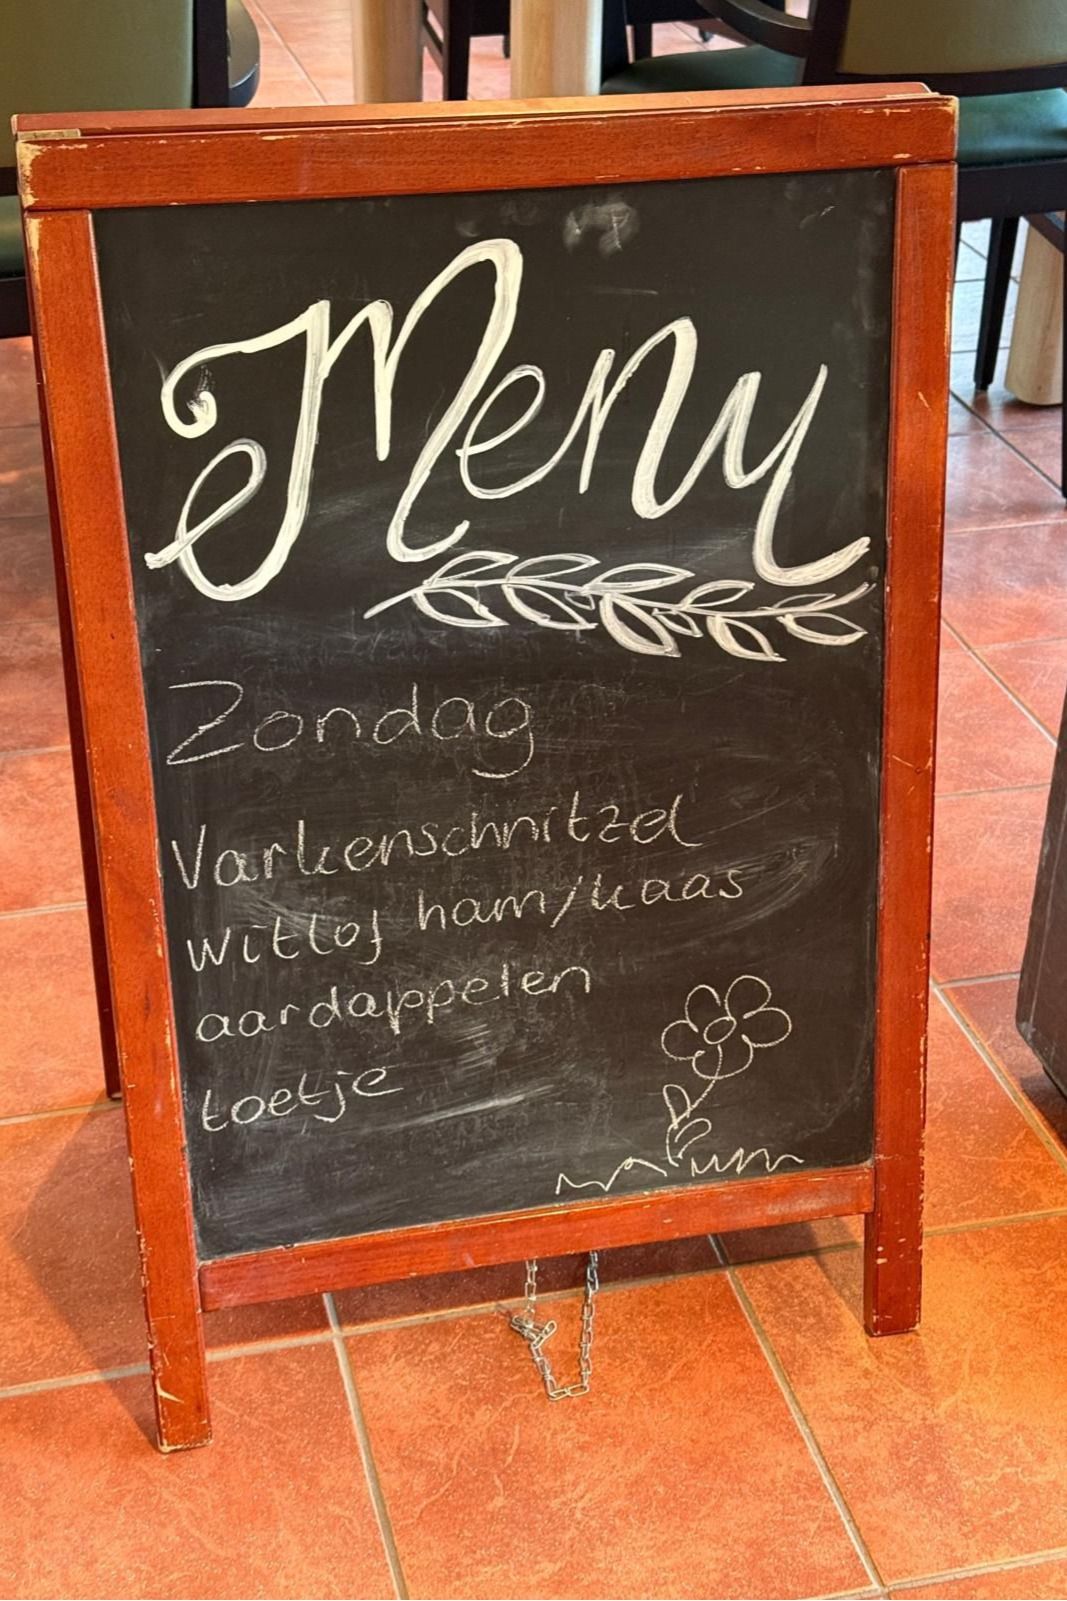 Menu
Zondag
Varkenschnitzel
Witlof ham/kaas
aardappelen
toetje